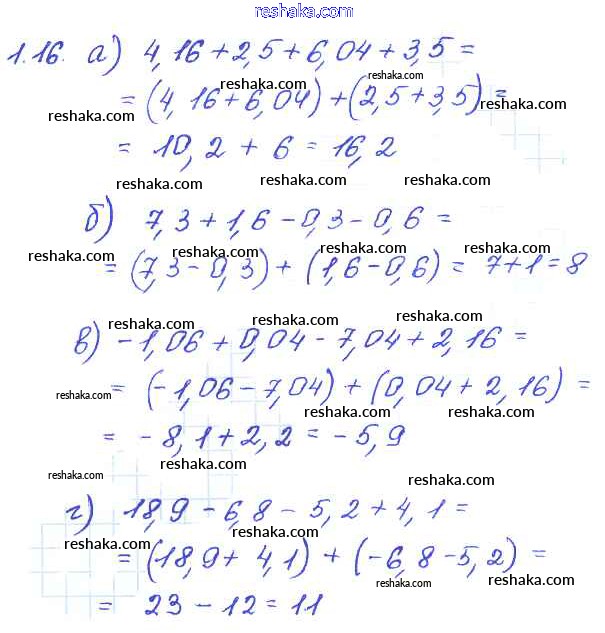 reshaka.com
1.16. а) 4,16 + 2,5 + 6,04 + 3,5 =
reshaka.com reshaka.com
= (4,16 + 6,04) + (2,5 + 3,5) =
reshaka.com reshaka.com reshaka.com
= 10,2 + 6 = 16,2
reshaka.com reshaka.com reshaka.com
б) 7,3 + 1,6 - 0,3 - 0,6 =
reshaka.com reshaka.com reshaka.com
= (7,3 - 0,3) + (1,6 - 0,6) = 7 + 1 = 8
reshaka.com reshaka.com reshaka.com
в) -1,06 + 0,04 - 7,04 + 2,16 =
reshaka.com reshaka.com reshaka.com
= (-1,06 - 7,04) + (0,04 + 2,16) =
reshaka.com reshaka.com reshaka.com
= -8,1 + 2,2 = -5,9
reshaka.com reshaka.com reshaka.com
г) 18,9 - 6,8 - 5,2 + 4,1 =
reshaka.com reshaka.com reshaka.com
= (18,9 + 4,1) + (-6,8 - 5,2) =
reshaka.com reshaka.com reshaka.com
= 23 - 12 = 11